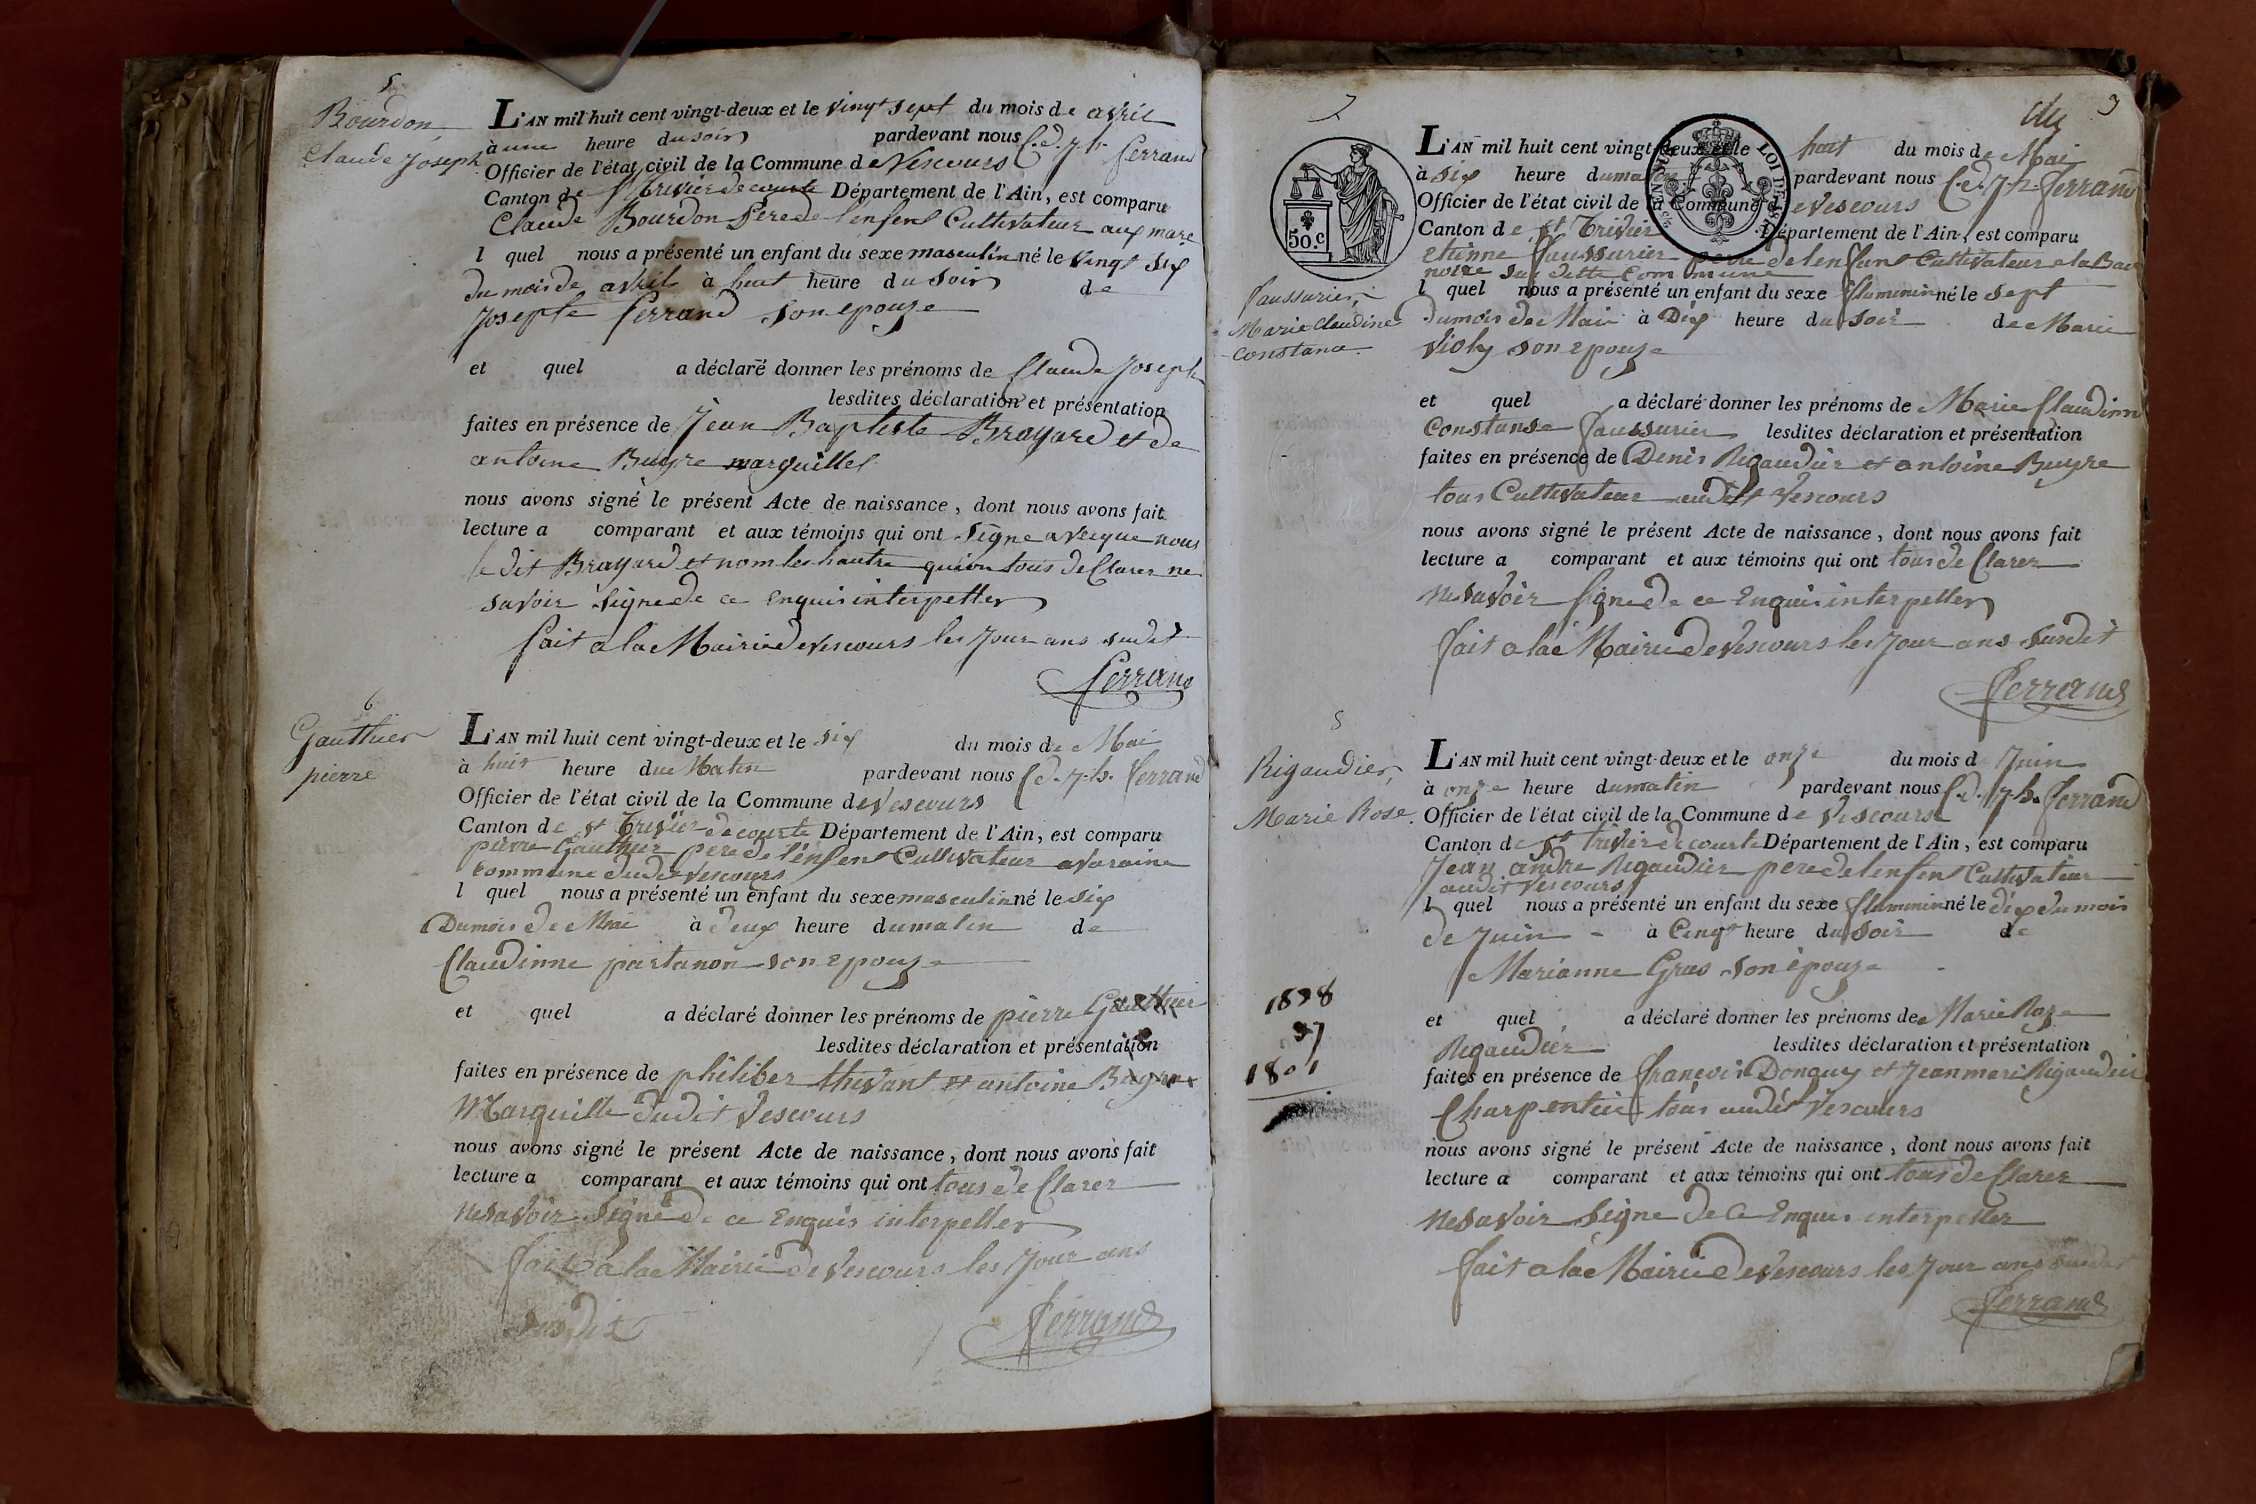 5
Bourdon
Claude Joseph
L'AN mil huit cent vingt-deux et le vingt sept du mois de avril
à une heure du soir pardevant nous C.d. j.h. ferrand
Officier de l'état civil de la Commune de Vescours
Canton de St Trivier de courte Département de l'Ain, est comparu
Claude Bourdon père de l'enfent Cultivateur aux mare
l quel nous a présenté un enfant du sexe masculin né le vingt six
du mois de avril à huit heure du soir de
Josephe ferrand son epouze
et quel a déclaré donner les prénoms de Claude Joseph
lesdites déclaration et présentation
faites en présence de Jean Baptiste Brayard et de
antoine Buyre marguiller
nous avons signé le présent Acte de naissance, dont nous avons fait
lecture a comparant et aux témoins qui ont signe avecque nous
le dit Brayard et nom les hautre qui on tous de Clarer ne
savoir signe de ce Enquis interpeller
fait a la Mairie de Vescours les Jour ans sudit
ferrand
6
Gauthier
pierre
L'AN mil huit cent vingt-deux et le six du mois de Mai
à huit heure due Matin pardevant nous C.d. j.h. ferrand
Officier de l'état civil de la Commune de Vescours
Canton de St Trivier de courte Département de l'Ain, est comparu
pierre Gauthier pere de l'enfent Cultivateur a Varaine
commune dudit Vescours
l quel nous a présenté un enfant du sexe masculin né le six
Dumois de Mai à deux heure du matin de
Claudinne partanon son epouze
et quel a déclaré donner les prénoms de pierre Gauthier
lesdites déclaration et présentation
faites en présence de philiber thivant et antoine Buyre
Marguille dudit Vescours
nous avons signé le présent Acte de naissance, dont nous avons fait
lecture a comparant et aux témoins qui ont tous de Clarer
ne savoir signe de ce Enquis interpeller
fait a lae Mairie de Vescours les Jour ans
susdit
ferrand
7
3
50.c
LOI DE 1816
L'AN mil huit cent vingt-deux et le huit du mois de Mai
à six heure du matin pardevant nous C.d. j.h. ferrand
Officier de l'état civil de la Commune de Vescours
Canton de St Trivier Département de l'Ain, est comparu
etienne faussurier perre de lenfant Cultivateur a la Bae
noire sur dette Commune
faussurier
Marie Claudine
Constance
l quel nous a présenté un enfant du sexe flaminin né le sept
dumois de Mai à Dix heure du soir de Marie
Violy son epouze
et quel a déclaré donner les prénoms de Marie Claudinne
Constanse faussurier lesdites déclaration et présentation
faites en présence de Denis Rigaudier et antoine Buyre
tous Cultivateur audit Vescours
nous avons signé le présent Acte de naissance, dont nous avons fait
lecture a comparant et aux témoins qui ont tous de Clarer
ne savoir signe de ce Enquis interpeller
fait a lae Mairie de Vescours les Jour ans susdit
ferrand
Rigaudier
Marie Rose
L'AN mil huit cent vingt-deux et le onze du mois d Juin
à onze heure du matin pardevant nous C.d. j.h. ferrand
Officier de l'état civil de la Commune de Vescours
Canton de St trivier de courte Département de l'Ain, est comparu
Jean andre Rigaudier pere de lenfent Cultivateur
audit Vescours
l quel nous a présenté un enfant du sexe flaminin né le dix du mois
de Juin à Cinq heure du soir de
Marianne Gras son épouze
et quel a déclaré donner les prénoms de Marie Roze
Rigaudier lesdites déclaration et présentation
faites en présence de françois Donguy et Jean mari Rigaudier
Charpentier tous audit Vescours
nous avons signé le présent Acte de naissance, dont nous avons fait
lecture a comparant et aux témoins qui ont tous de Clarer
ne savoir signe de Ce Enquis interpeller
fait a lae Mairie de Vescours les Jour ans susdit
ferrand
1838
37
1801